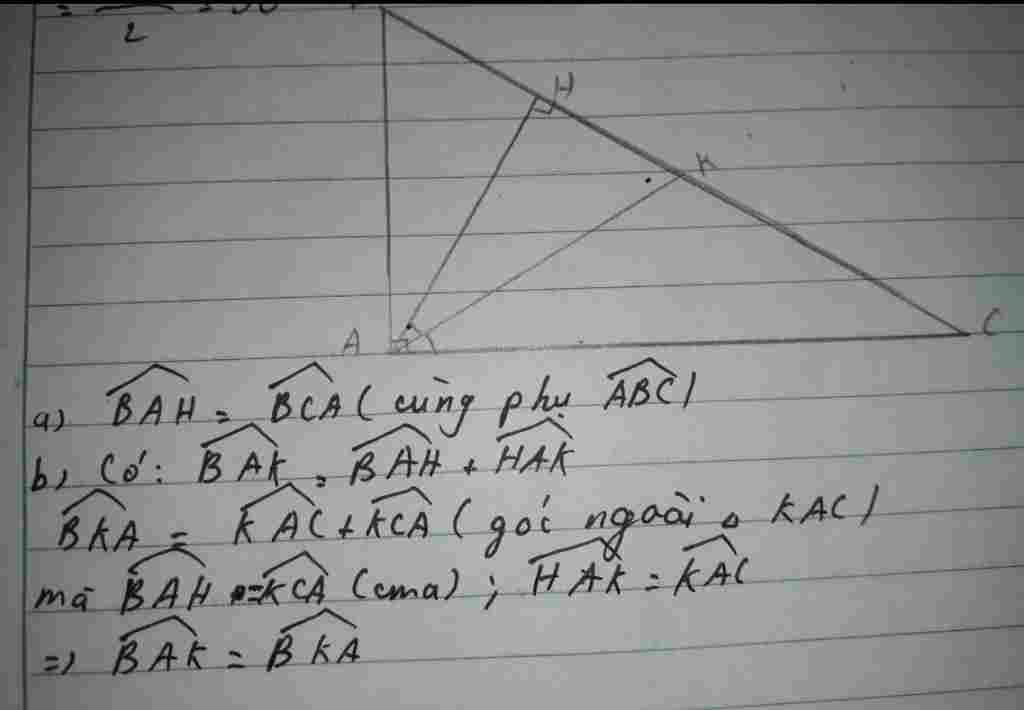 2
H
K
A
C
a) BAH = BCA (cùng phụ ABC)
b) Có: BAK = BAH + HAK
BKA = KAC + KCA (góc ngoài △ KAC)
mà BAH = KCA (cma) ; HAK = KAC
=> BAK = BKA